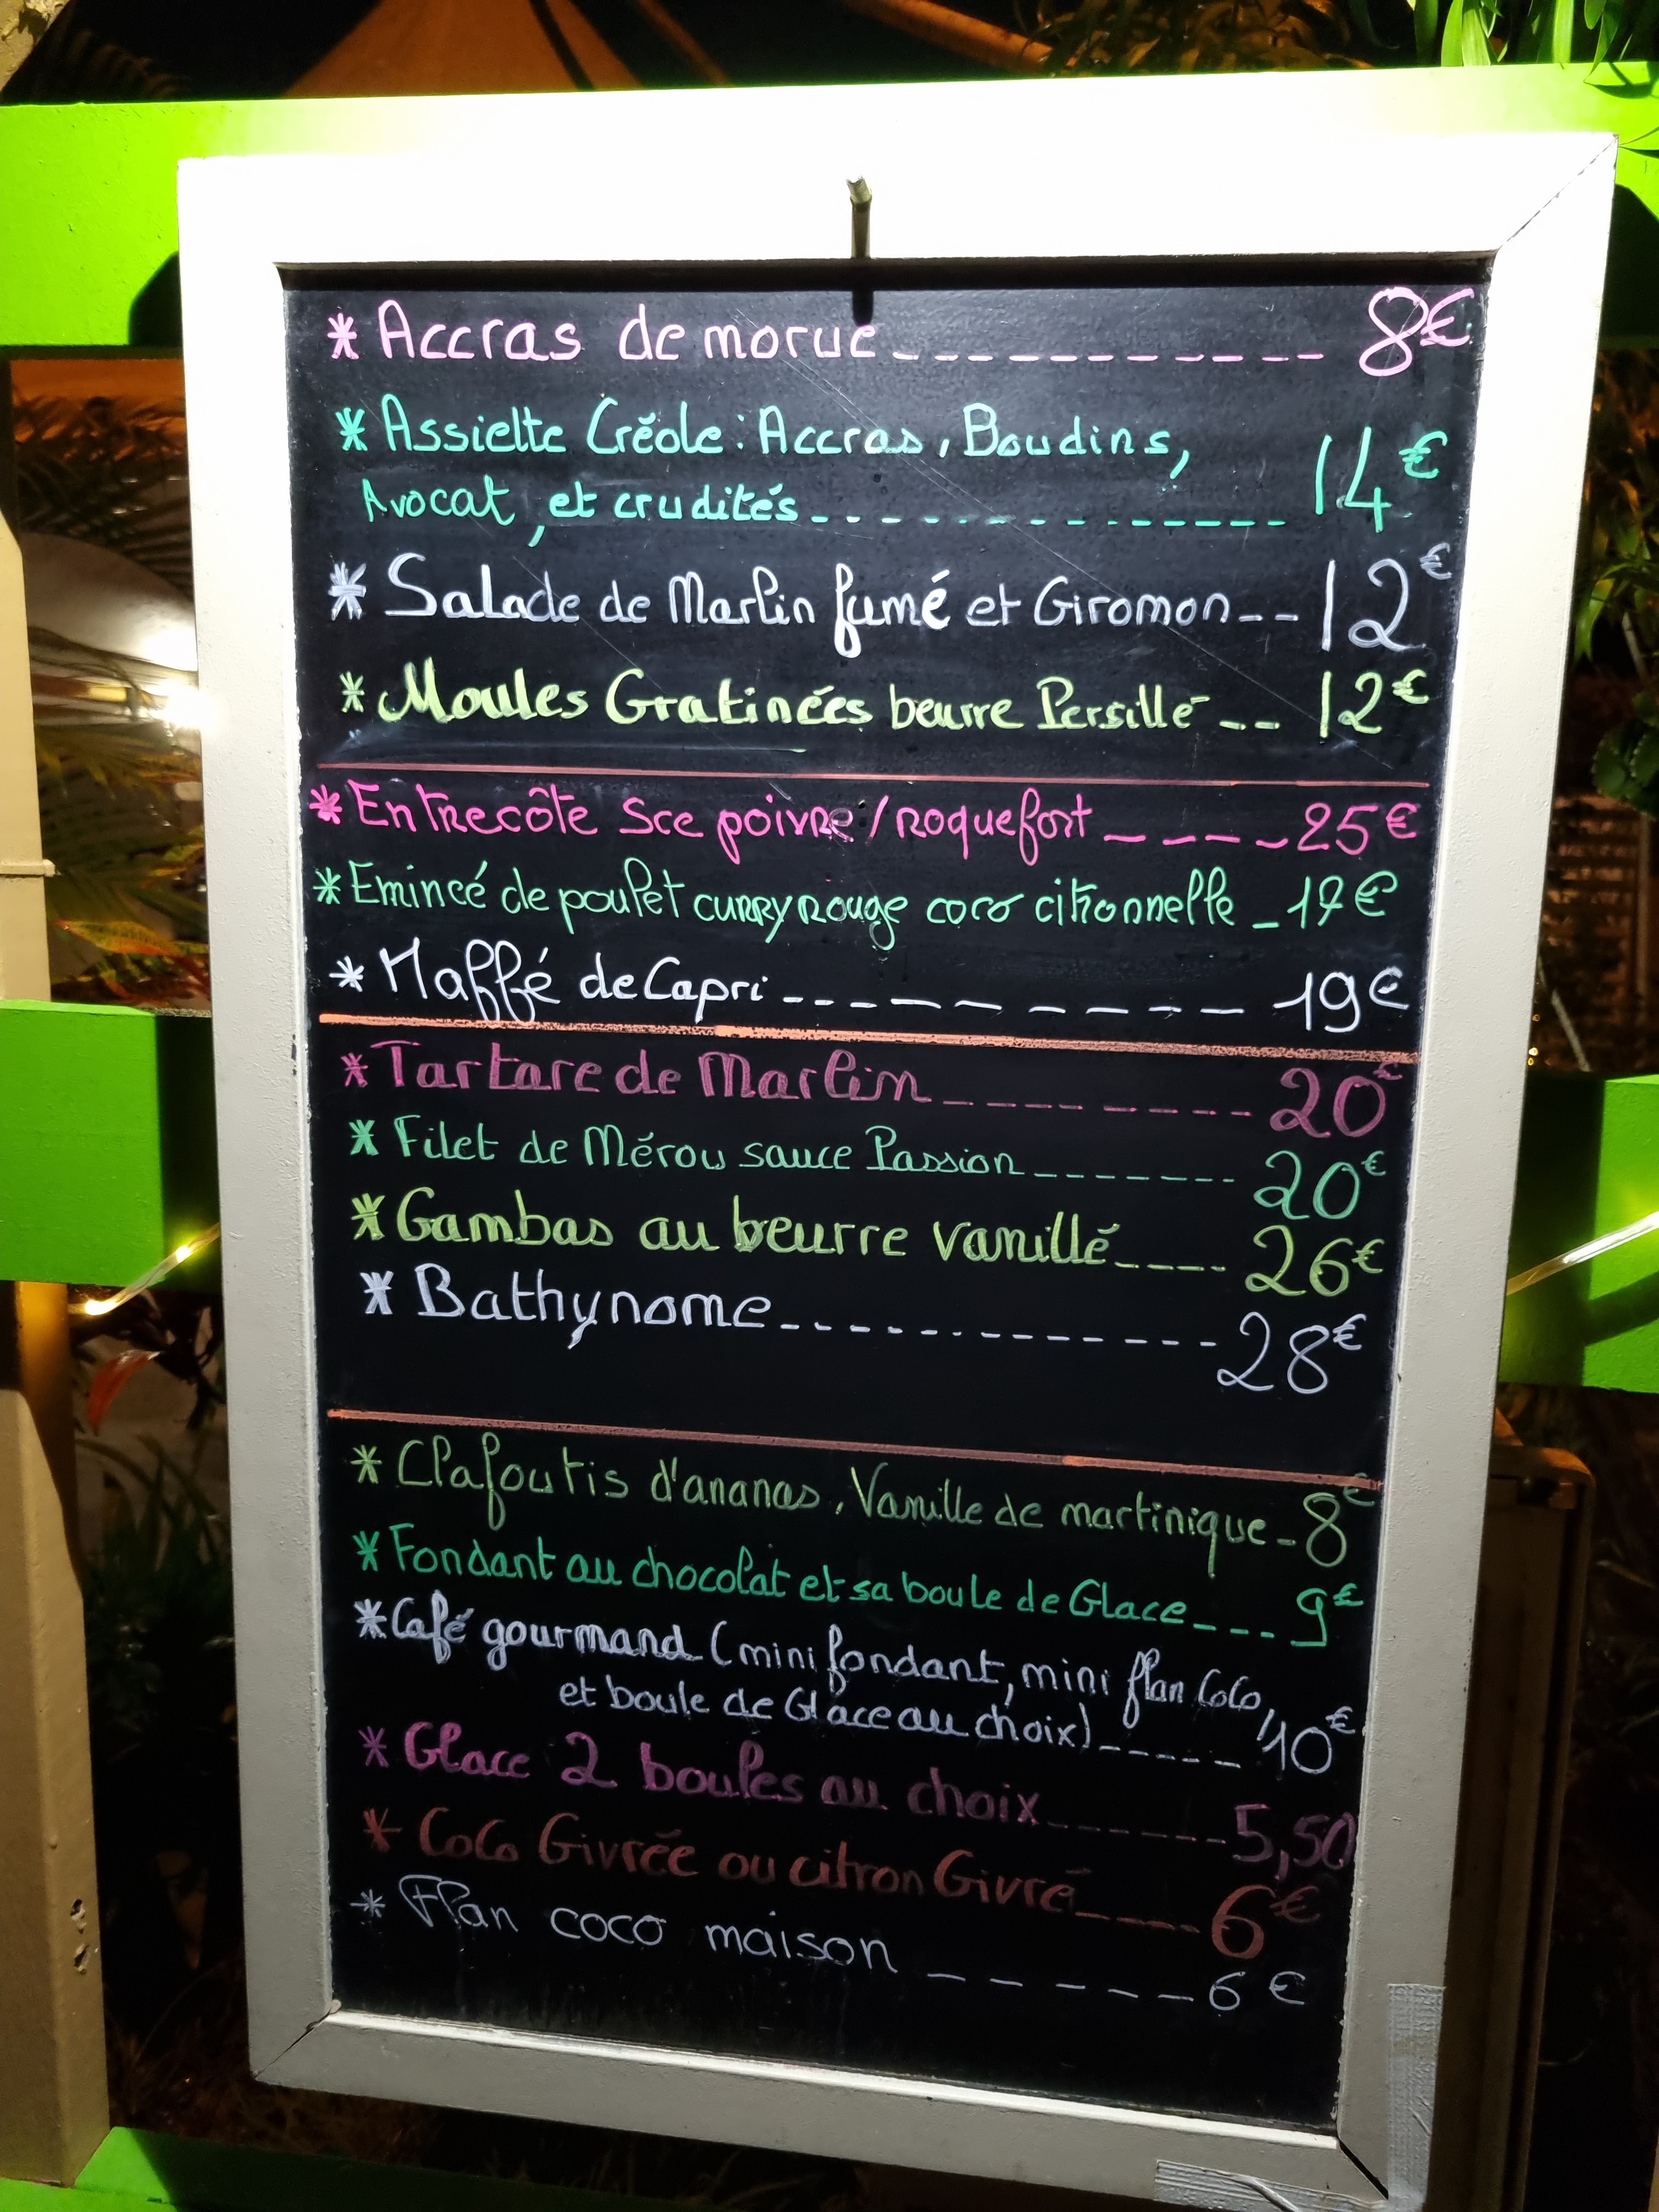 * Accras de morue___________ 8€
* Assiette Créole: Accras, Boudins,
Avocat, et crudités_____________ 14€
* Salade de Marlin fumé et Giromon-- 12€
* Moules Gratinées beurre Persillé -- 12€
* Entrecôte Sce poivre/roquefort _____ 25€
* Emincé de poulet curry rouge coco citronnelle _ 17€
* Maffé de Capri ---_________ 19€
* Tartare de Marlin__________ 20€
* Filet de Mérou sauce Passion_______ 20€
* Gambas au beurre vanillé____ 26€
* Bathynome_____________ 28€
* Clafoutis d'ananas, Vanille de martinique - 8€
* Fondant au chocolat et sa boule de Glace___ 9€
* Café gourmand (mini fondant, mini flan CoCo,
et boule de Glace au choix)_____ 10€
* Glace 2 boules au choix______ 5,50
* CoCo Givrée ou citron Givré____ 6€
* Flan coco maison ______ 6€